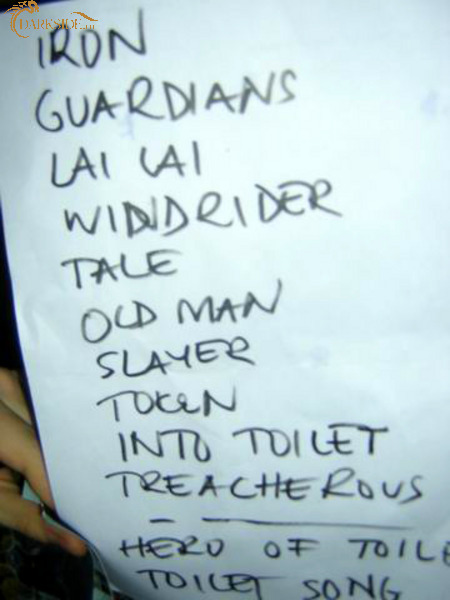 DARKSIDE.ru
IRON
GUARDIANS
LAI LAI
WINDRIDER
TALE
OLD MAN
SLAYER
TOKEN
INTO TOILET
TREACHEROUS
HERO OF TOILE
TOILET SONG